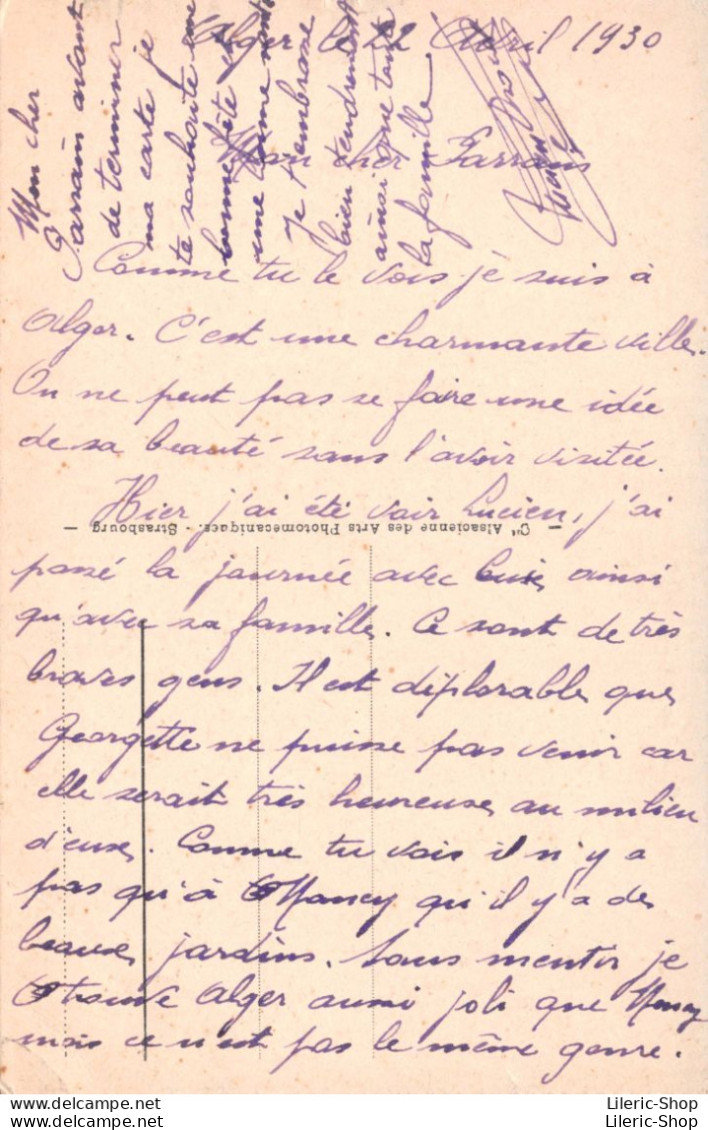 Alger le 22 Avril 1930
Mon cher Parrain
Comme tu le vois je suis à
Alger. C'est une charmante ville.
On ne peut pas se faire une idée
de sa beauté sans l'avoir visitée.
Hier j'ai été voir Lucien, j'ai
passé la journée avec lui ainsi
qu'avec sa famille. Ce sont de très
braves gens. Il est déplorable que
Georgette ne puisse pas venir car
elle serait très heureuse au milieu
d'eux. Comme tu vois il n'y a
pas qu'à Nancy qu'il y a de
beaux jardins. Sans mentir je
trouve Alger aussi joli que Nancy
mais ce n'est pas le même genre.
Mon cher
Parrain avant
de terminer
ma carte je
te souhaite une
bonne fête et
une bonne santé
Je t'embrasse
bien tendrement
ainsi que toute
la famille.
— Cie Alsacienne des Arts Photomécaniques. - Strasbourg —
Lileric-Shop
Lileric-Shop